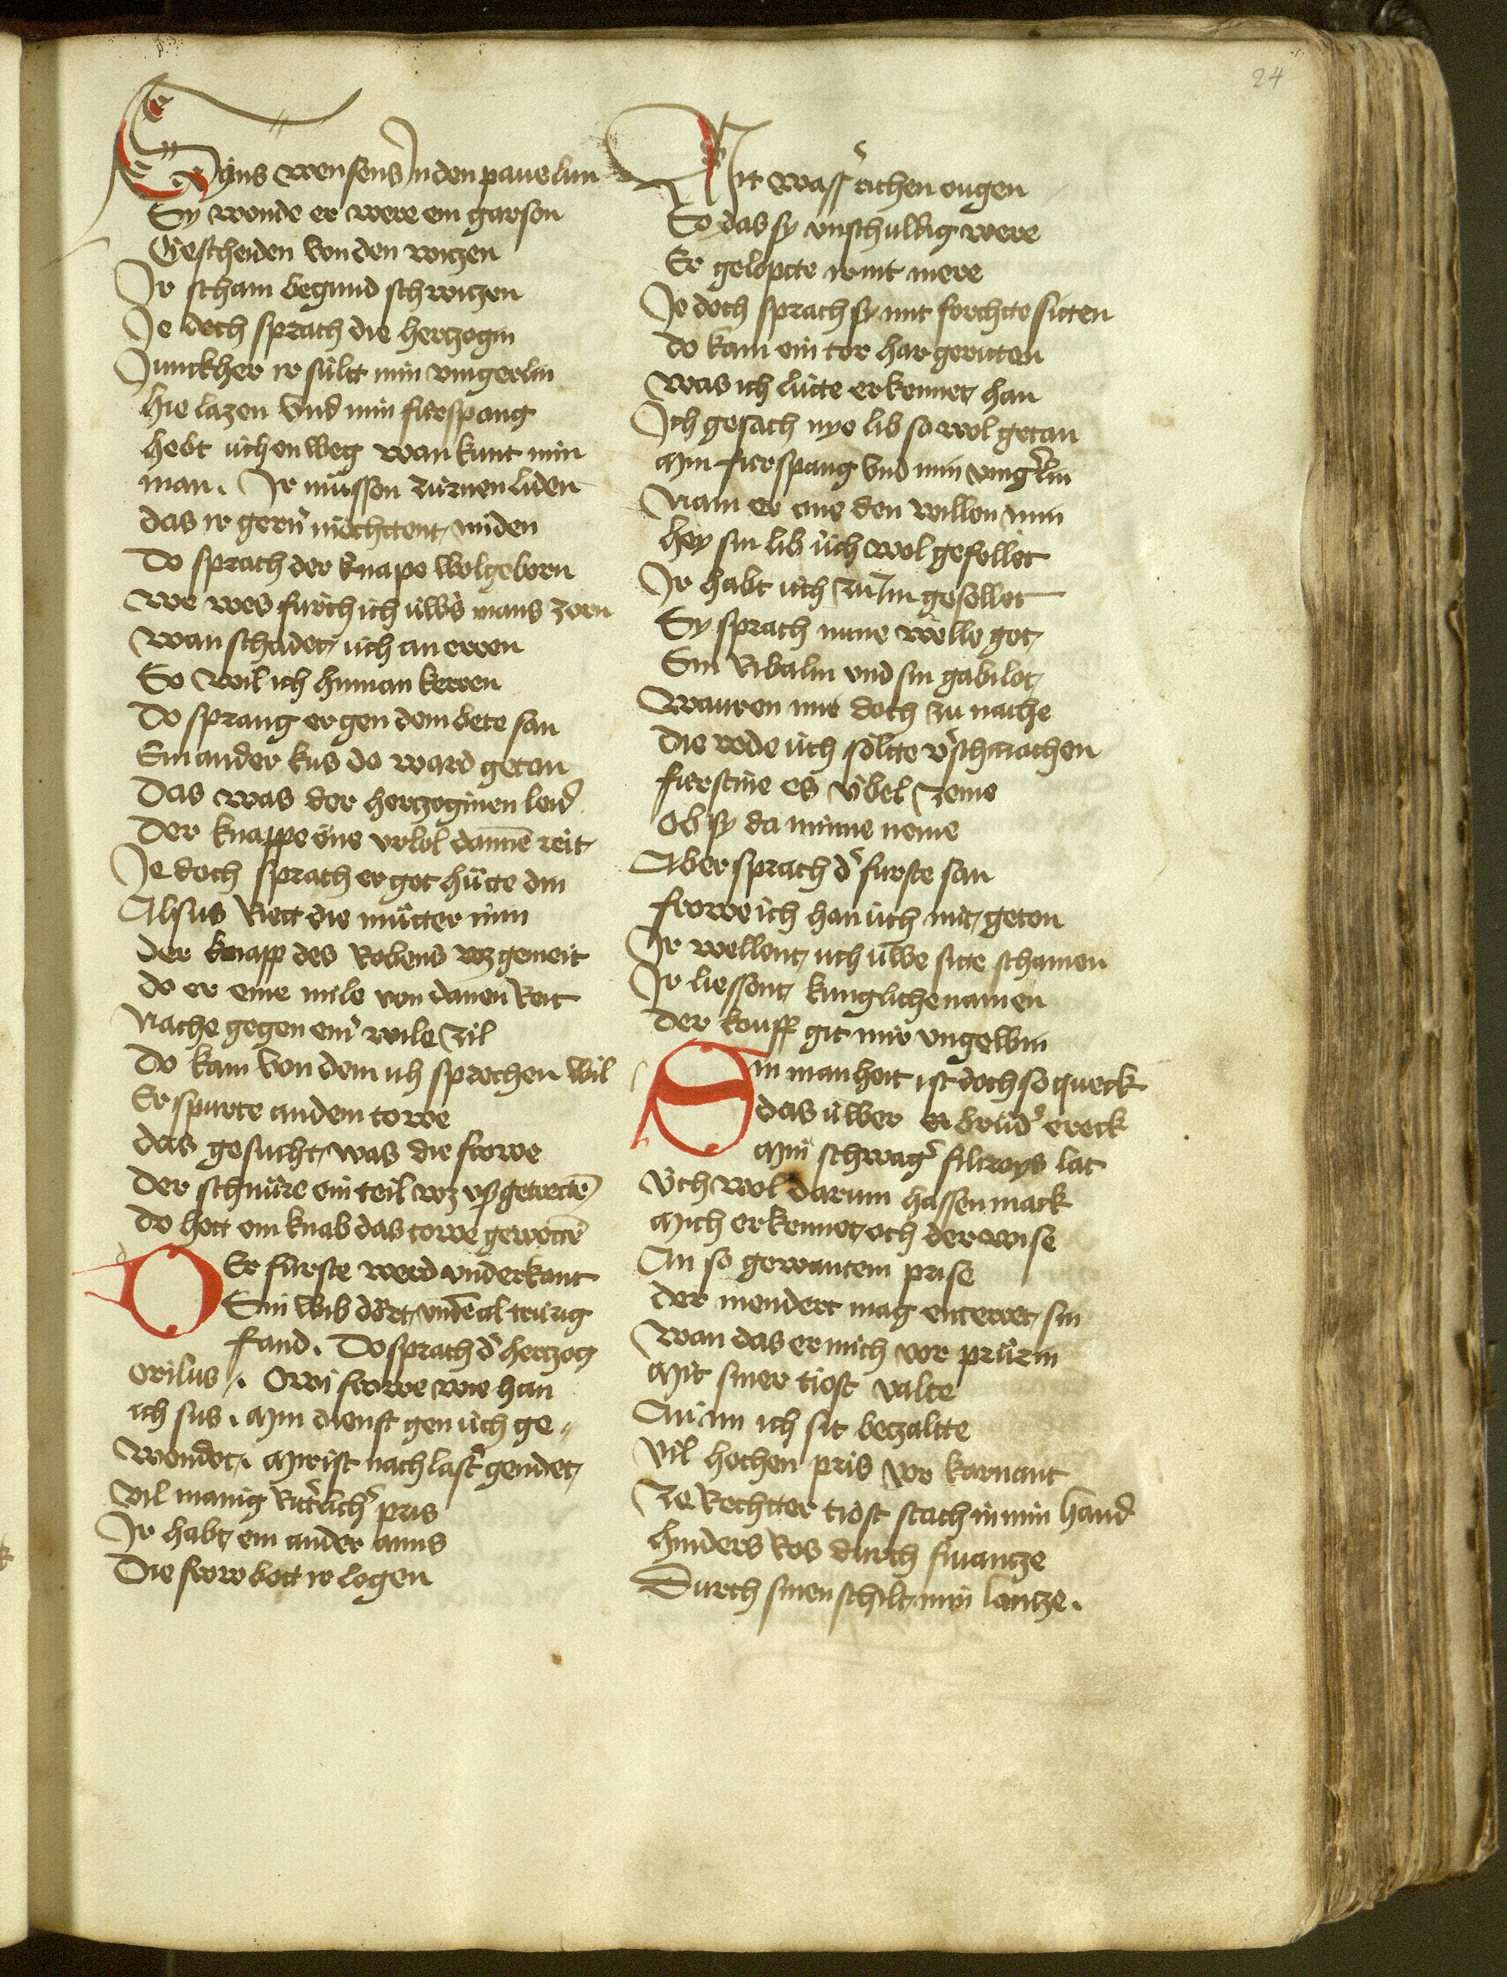 24
Eyns wensens in den pauelun
Sy wonde er were ein garson
Gescheiden von den witzen
Ir scham begund schwitzen
Je doch sprach die hertzogin
Junckher ir sült min vingerlin
hie lazen vnd min fürspang
hebt üch en weg wan kunt min
man. Ir müssen zürnen liden
das ir gern möchttent miden
Do sprach der knape wolgeborn
we wes fürch ich üwers mans zorn
wan schadet üch an erren
So wil ich hinnan kerren
Do sprang er gen dem bete san
Ein ander kus do ward getan
Das was der hertzoginen leid
Der knappe one vrlob dannen reit
Je doch sprach er got hütte din
Alsus Riett die mütter min
der knapp des Robens wz gemeit
do er eine mile von danen Reit
Nache gegen einer wile zil
Do kam von dem ich sprechen wil
Er spurte an dem towe
das gesucht was die frowe
Der schnüre ein teil wz vß getrette
Do hett ein knab das towe gewette
Der fürste werd vnderkant
Sin wib dört vnden al trurig
fand. Do sprach der hertzog
orilus. Owi frowe wie han
ich sus. Min dienst gen üch ge-
wendet. Mir ist nach laster gendet
vil manig Ritterlicher pris
Ir habt ein ander amis
Die frow bott ir logen
Mit wasserrichen ougen
So das sy vnschuldig were
Er geloptte ir nit mere
Je doch sprach sy mit forchtte sitten
do kam ein tor har geritten
was ich lütte erkennet han
Ich gesach nye lib so wol getan
Min fürspang vnd min vingerlin
Nam er ane den willen min
hey sin lib üch wol gefellet
Ir habt üch zu im gesellet
Sy sprach nune welle got
Sin Ribalin vnd sin gabilot
Warren mir doch zu nache
Die rede üch söltte verschmachen
fürstine es übel zeme
Ob sy da minne neme
Aber sprach der furste san
frowe ich han üch nit geton
Ir wellent üch üwer sitte schamen
Ir liessent kunglichen namen
Der kouff git mir vngewin
Sin manheit ist doch so queck
das üwer bruder ereck
Min schwager filtroys lac
üch wol darum hassen mack
Mich erkennet och der wise
An so gewantem prise
Der niendert mag enterret sin
Wan das er mich vor prürin
Mit siner tiost valte
An im ich sit betzaltte
Vil hochen pris vor karnant
Ze Rechtter tiost stach in min hand
hinders Ros durch fiiantze
Durch sinen schilt min lantze.